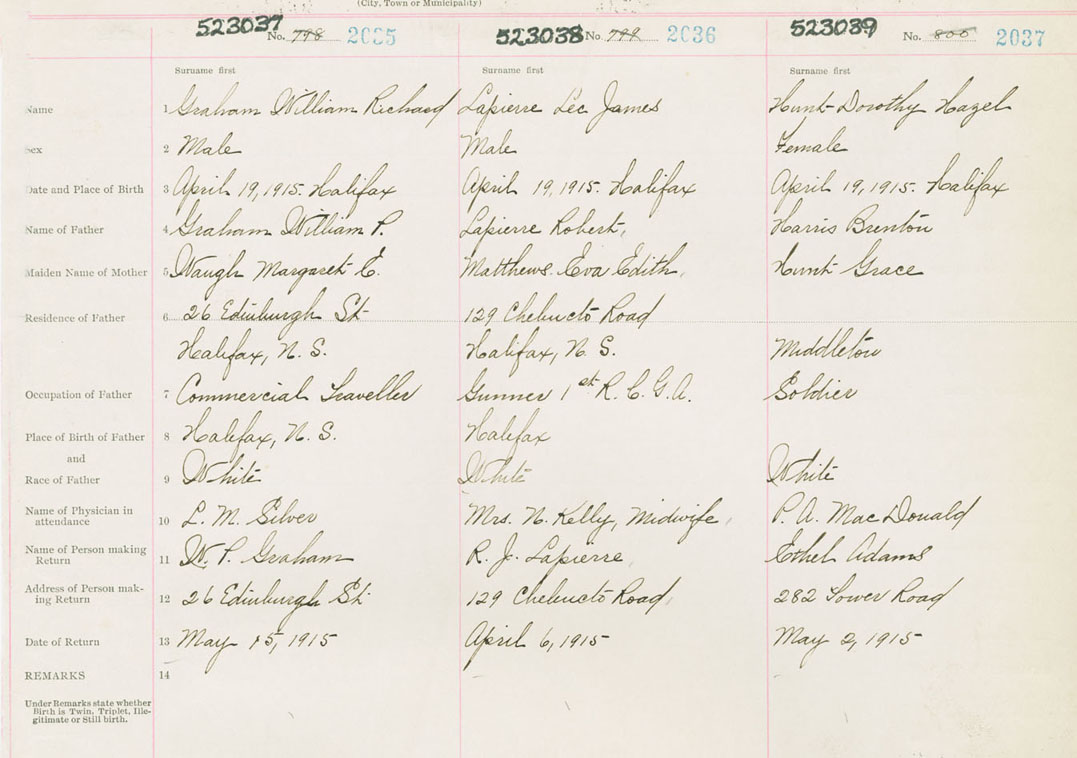 (City, Town or Municipality)
523037 No. 798 2035 523038 No. 799 2036 523039 No. 800 2037
Surname first Surname first Surname first
Name 1 Graham William Richard Lapierre Leo James Hunt Dorothy Hazel
Sex 2 Male Male Female
Date and Place of Birth 3 April 19, 1915. Halifax April 19, 1915. Halifax April 19, 1915. Halifax
Name of Father 4 Graham William P. Lapierre Robert, Harris Brenton
Maiden Name of Mother 5 Waugh Margaret E. Matthews Eva Edith, Hunt Grace
Residence of Father 6 26 Edinburgh St 129 Chebucto Road
Halifax, N. S. Halifax, N. S. Middleton
Occupation of Father 7 Commercial Traveller Gunner 1st R. C. G. A. Soldier
Place of Birth of Father 8 Halifax, N. S. Halifax
and
Race of Father 9 White White White
Name of Physician in
attendance 10 L. M. Silver Mrs. N. Kelly, Midwife, P. A. MacDonald
Name of Person making
Return 11 W. P. Graham R. J. Lapierre, Ethel Adams
Address of Person mak-
ing Return 12 26 Edinburgh St. 129 Chebucto Road, 282 Tower Road
Date of Return 13 May 15, 1915 April 6, 1915 May 2, 1915
REMARKS 14
Under Remarks state whether
Birth is Twin, Triplet, Ille-
gitimate or Still birth.